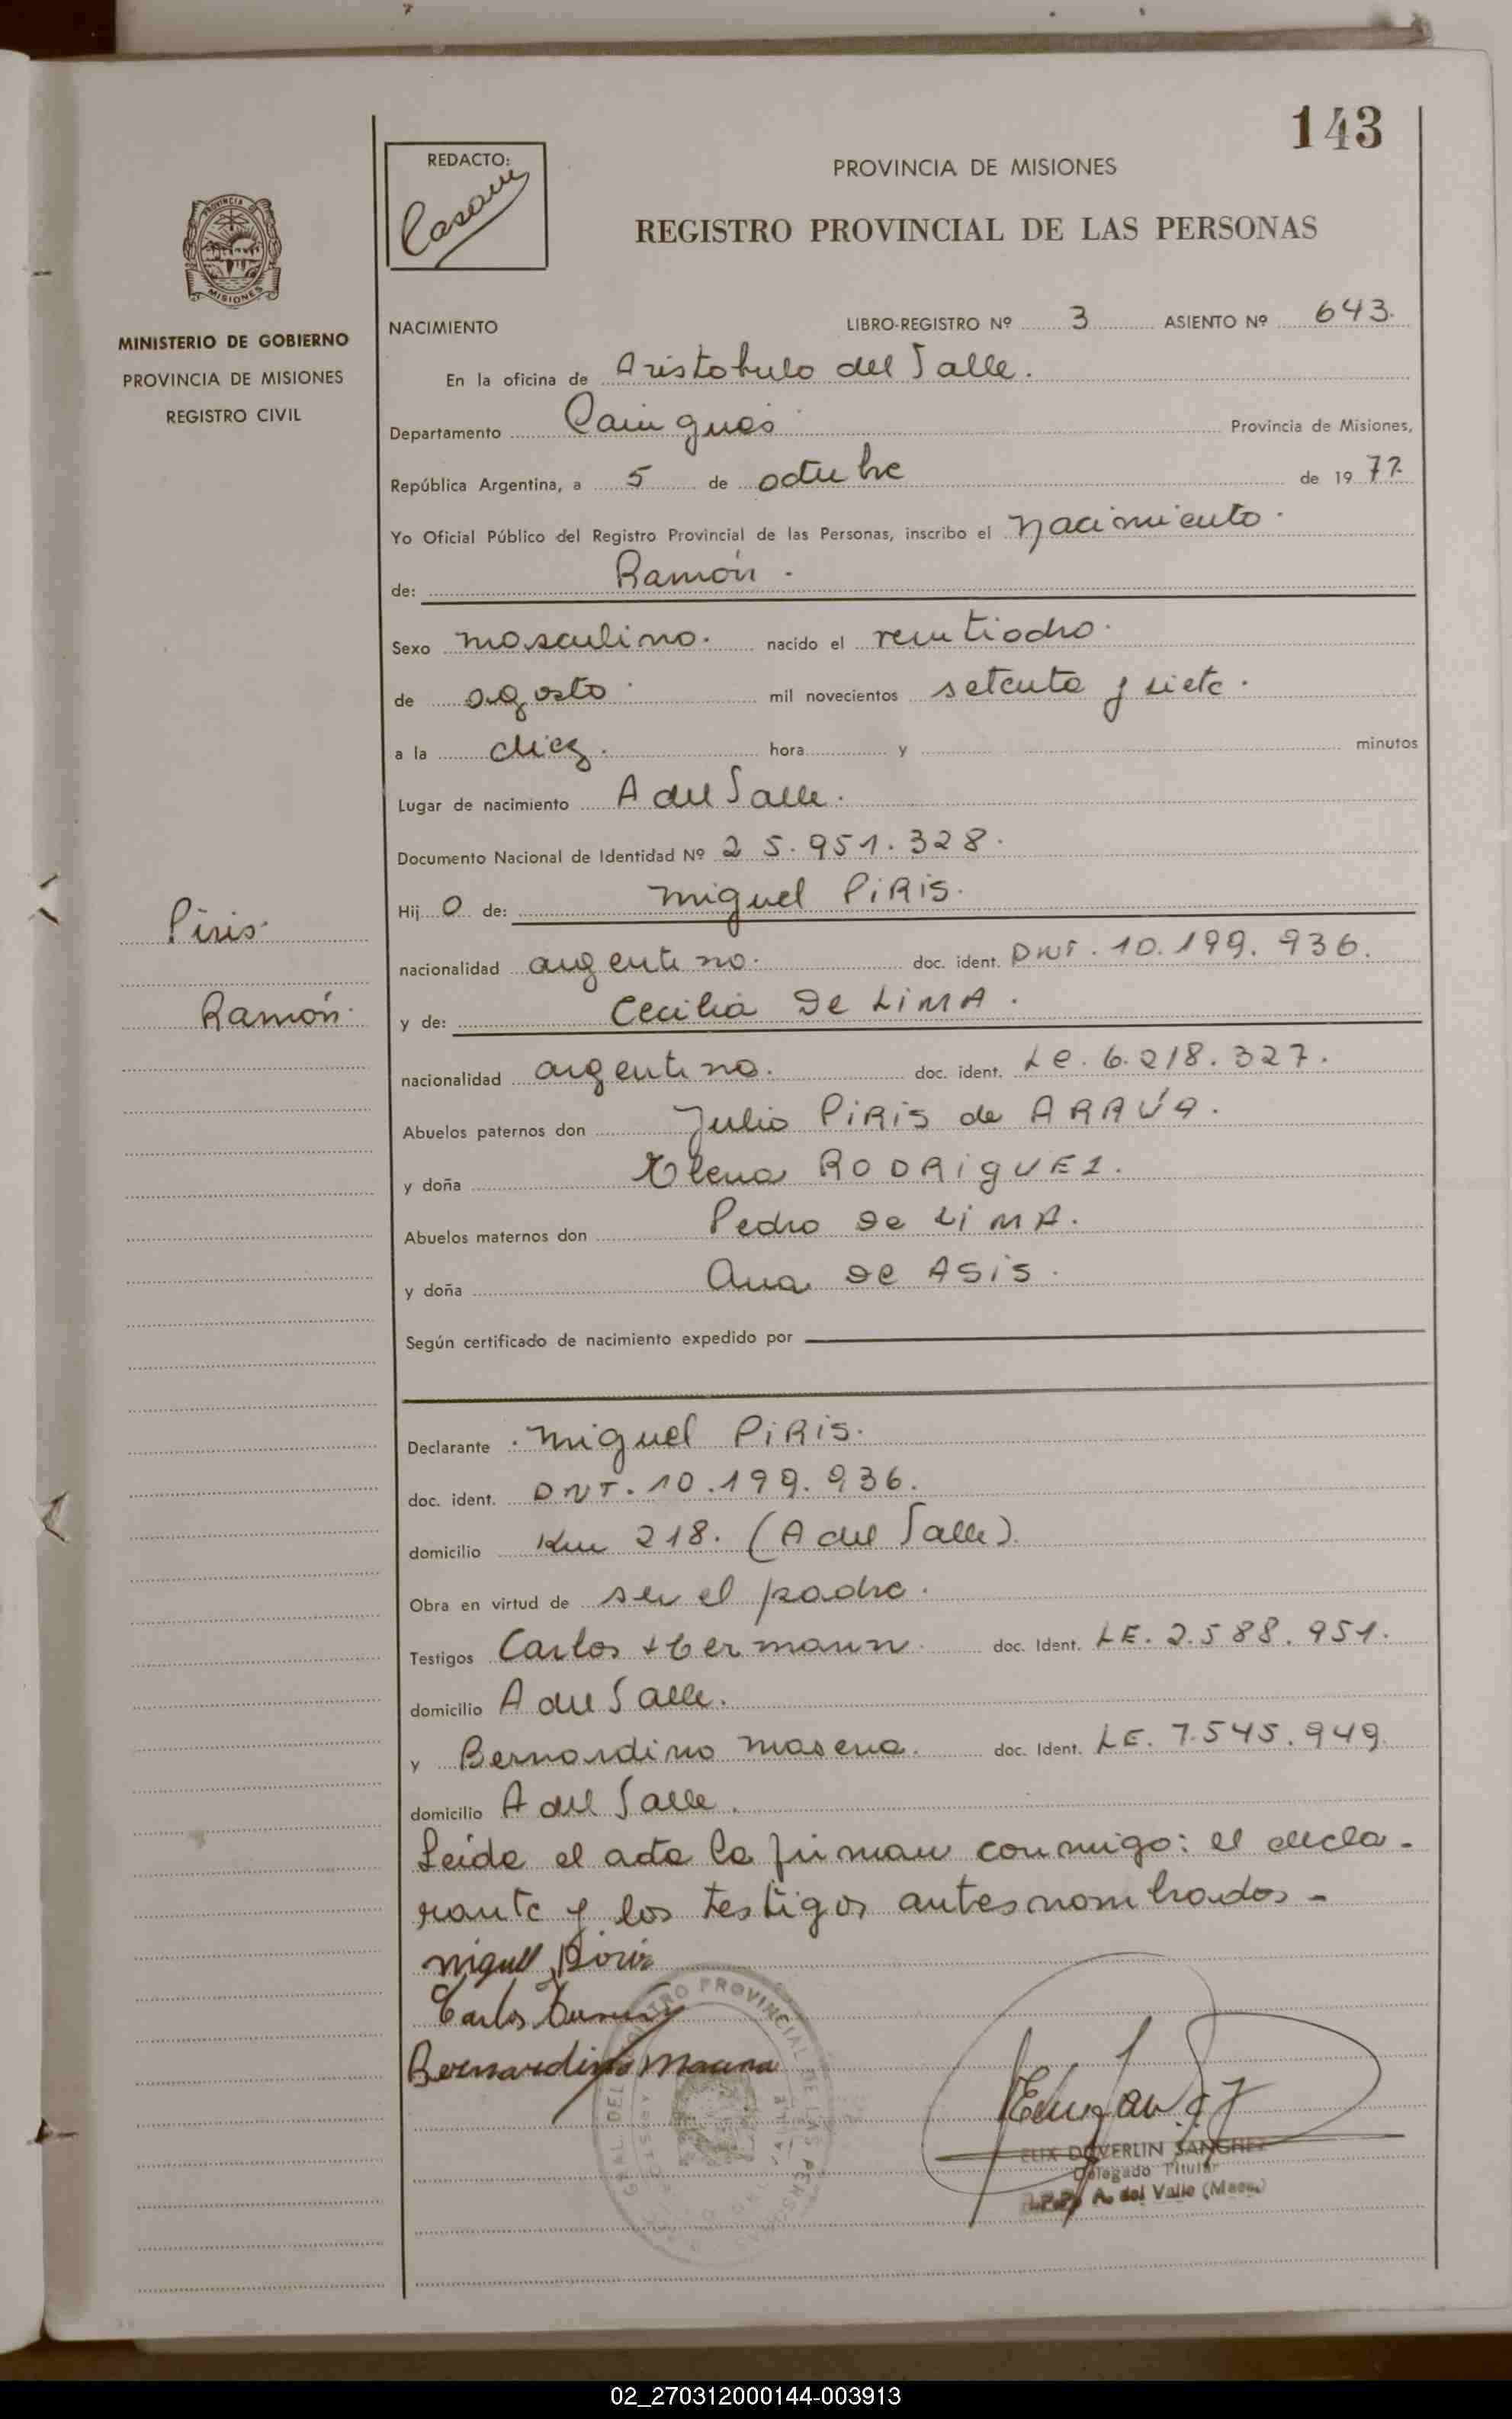 143
REDACTO:
PROVINCIA DE MISIONES
REGISTRO PROVINCIAL DE LAS PERSONAS
PROVINCIA DE
MISIONES
MINISTERIO DE GOBIERNO
PROVINCIA DE MISIONES
REGISTRO CIVIL
NACIMIENTO LIBRO-REGISTRO Nº 3 ASIENTO Nº 643.
En la oficina de Aristobulo del Valle.
Departamento Cainguas Provincia de Misiones,
República Argentina, a 5 de octubre de 1977.
Yo Oficial Público del Registro Provincial de las Personas, inscribo el nacimiento.
de: Ramón.
Sexo masculino. nacido el veintiocho.
de agosto. mil novecientos setenta y siete.
a la diez. hora y minutos
Lugar de nacimiento A del Valle.
Documento Nacional de Identidad Nº 25.951.328.
Hij O de: Miguel PiRis.
nacionalidad argentino. doc. ident. DNI. 10.199.936.
Piris.
Ramón.
y de: Cecilia De LiMA.
nacionalidad argentina. doc. ident. Le. 6.218.327.
Abuelos paternos don Julio PiRis de ARAÚ
y doña Elena RODRiguEZ.
Abuelos maternos don Pedro De LiMA.
y doña Ana De ASiS.
Según certificado de nacimiento expedido por
Declarante Miguel PiRis.
doc. ident. DNI. 10.199.936.
domicilio Km 218. (A del Valle).
Obra en virtud de ser el padre.
Testigos Carlos doc. Ident. LE. 2.588.951.
domicilio A del Valle.
y Bernardino Masena. doc. Ident. LE. 7.545.949.
domicilio A del Valle.
Leída el acta la firman conmigo: el decla-
rante y los testigos antes nombrados-
Miguel Piris
Carlos
Bernardino Macena
REGISTRO PROVINCIAL DE LAS PERSONAS
DOVERLIN SANCHEZ
Delegado Titular
A. del Valle
02_270312000144-003913